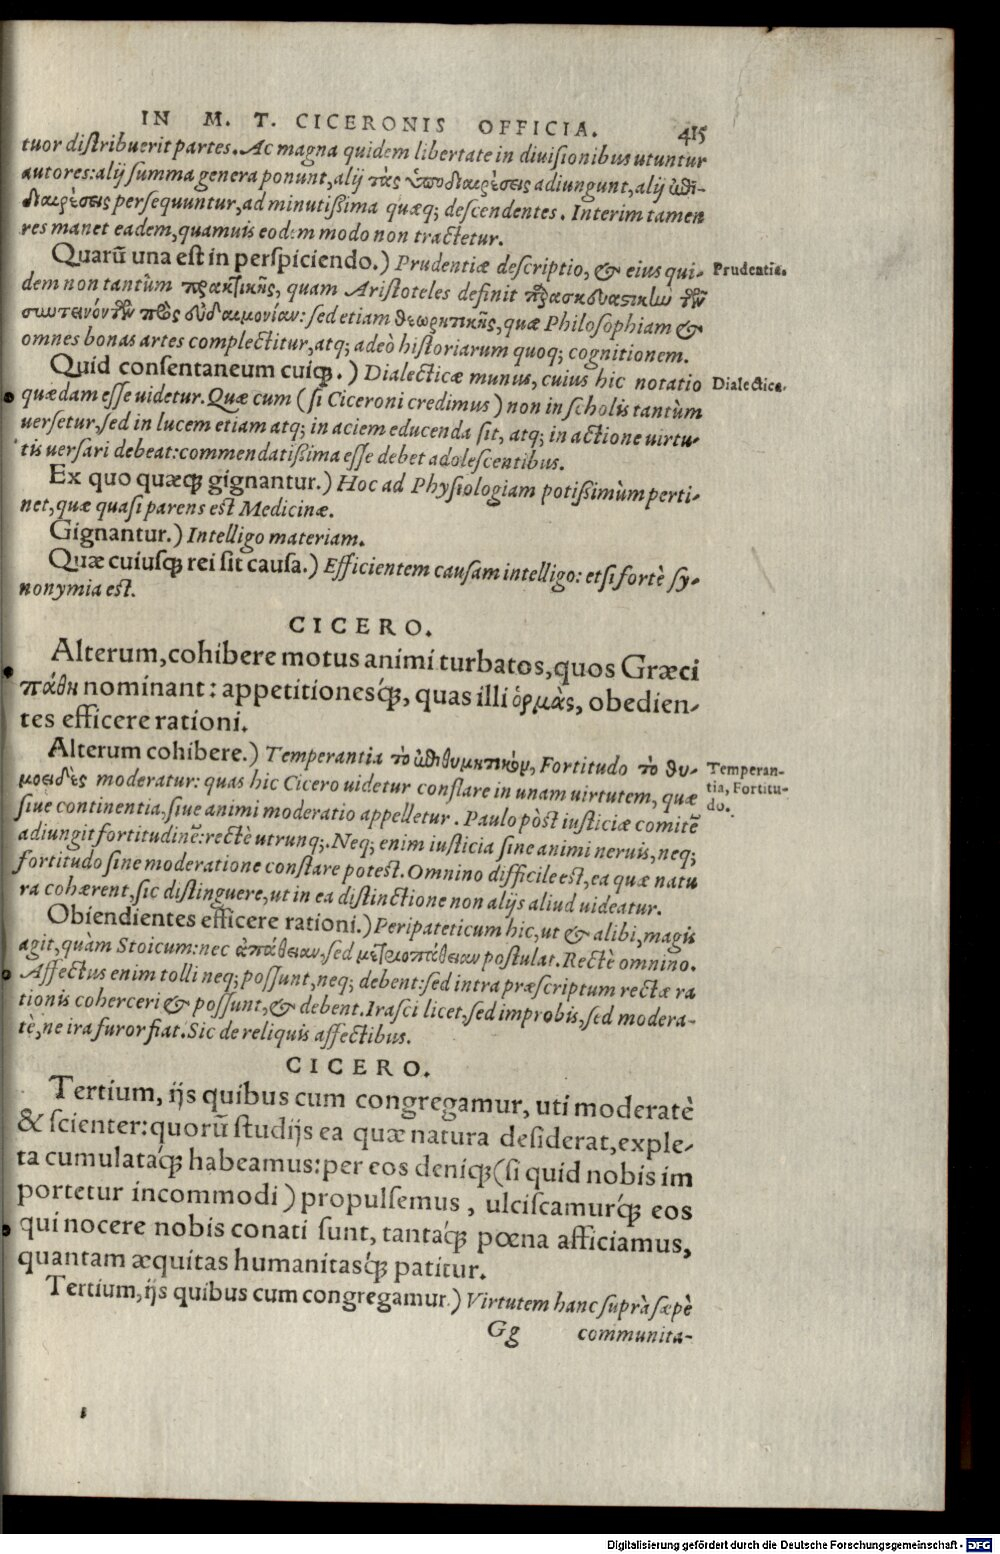 IN M. T. CICERONIS OFFICIA. 415
tuor distribuerit partes. Ac magna quidem libertate in diuisionibus utuntur
autores: alij summa genera ponunt, alij τὰς ὑποδιαιρέσεις adiungunt, alij ἐπι-
διαιρέσεις persequuntur, ad minutißima quæq; descendentes. Interim tamen
res manet eadem, quamuis eodem modo non tractetur.
Quarũ una est in perspiciendo.) Prudentiæ descriptio, & eius qui-
Prudentia.
dem non tantùm πρακτικῆς, quam Aristoteles definit παρασκευαστικὴν τῶν
συντεινόντων πρὸς εὐδαιμονίαν: sed etiam θεωρητικῆς, quæ Philosophiam &
omnes bonas artes complectitur, atq; adeò historiarum quoq; cognitionem.
Quid consentaneum cuiq́;.) Dialecticæ munus, cuius hic notatio
Dialectica.
quædam esse uidetur. Quæ cum (si Ciceroni credimus) non in scholis tantùm
uersetur, sed in lucem etiam atq; in aciem educenda sit, atq; in actione uirtu-
tis uersari debeat: commendatißima esse debet adolescentibus.
Ex quo quæq; gignantur.) Hoc ad Physiologiam potißimùm perti-
net, quæ quasi parens est Medicinæ.
Gignantur.) Intelligo materiam.
Quæ cuiusq; rei sit causa.) Efficientem causam intelligo: etsi fortè sy-
nonymia est.
CICERO.
Alterum, cohibere motus animi turbatos, quos Græci
πάθη nominant: appetitionesq́;, quas illi ὁρμὰς, obedien-
tes efficere rationi.
Alterum cohibere.) Temperantia τὸ ἐπιθυμητικὸν, Fortitudo τὸ θυ-
Temperan-
μοειδὲς moderatur: quas hic Cicero uidetur conflare in unam uirtutem, quæ
tia, Fortitu-
siue continentia, siue animi moderatio appelletur. Paulo pòst iusticiæ comitẽ
do.
adiungit fortitudinẽ: rectè utrunq;. Neq; enim iusticia sine animi neruis, neq;
fortitudo sine moderatione constare potest. Omnino difficile est, ea quæ natu
ra cohærent, sic distinguere, ut in ea distinctione non alijs aliud uideatur.
Obiendientes efficere rationi.) Peripateticum hic, ut & alibi, magis
agit, quàm Stoicum: nec ἀπάθειαν, sed μετριοπάθειαν postulat. Rectè omnino.
Affectus enim tolli neq; possunt, neq; debent: sed intra præscriptum rectæ ra
tionis coherceri & possunt, & debent. Irasci licet, sed improbis, sed modera-
tè, ne ira furor fiat. Sic de reliquis affectibus.
CICERO.
Tertium, ijs quibus cum congregamur, uti moderatè
& scienter: quorũ studijs ea quæ natura desiderat, exple-
ta cumulataq́; habeamus: per eos deniq́; (si quid nobis im
portetur incommodi) propulsemus, ulciscamurq́; eos
qui nocere nobis conati sunt, tantaq́; pœna afficiamus,
quantam æquitas humanitasq́; patitur.
Tertium, ijs quibus cum congregamur.) Virtutem hanc suprà sæpè
Gg communita-
Digitalisierung gefördert durch die Deutsche Forschungsgemeinschaft - DFG